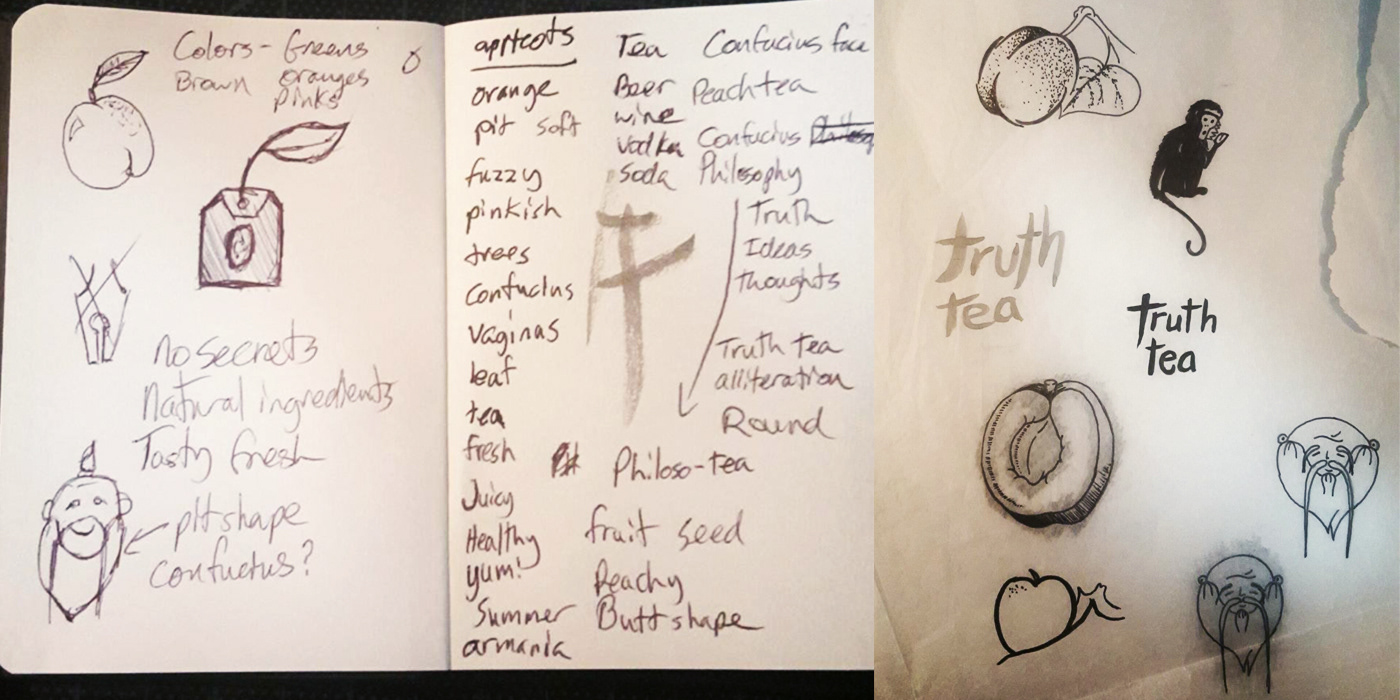 Colors - Greens
Brown oranges
pinks
no secrets
Natural ingredients
Tasty fresh
pit shape
confucius?
apricots
orange
pit soft
fuzzy
pinkish
trees
Confucius
vaginas
leaf
tea
fresh
Juicy
Healthy
yum!
Summer
armania
Tea
Beer
wine
vodka
soda
Confucius face
Peach tea
Confucius
Philosophy
Truth
Ideas
Thoughts
Truth tea
alliteration
Round
Philoso-tea
fruit seed
Peachy
Butt shape
truth
tea
truth
tea